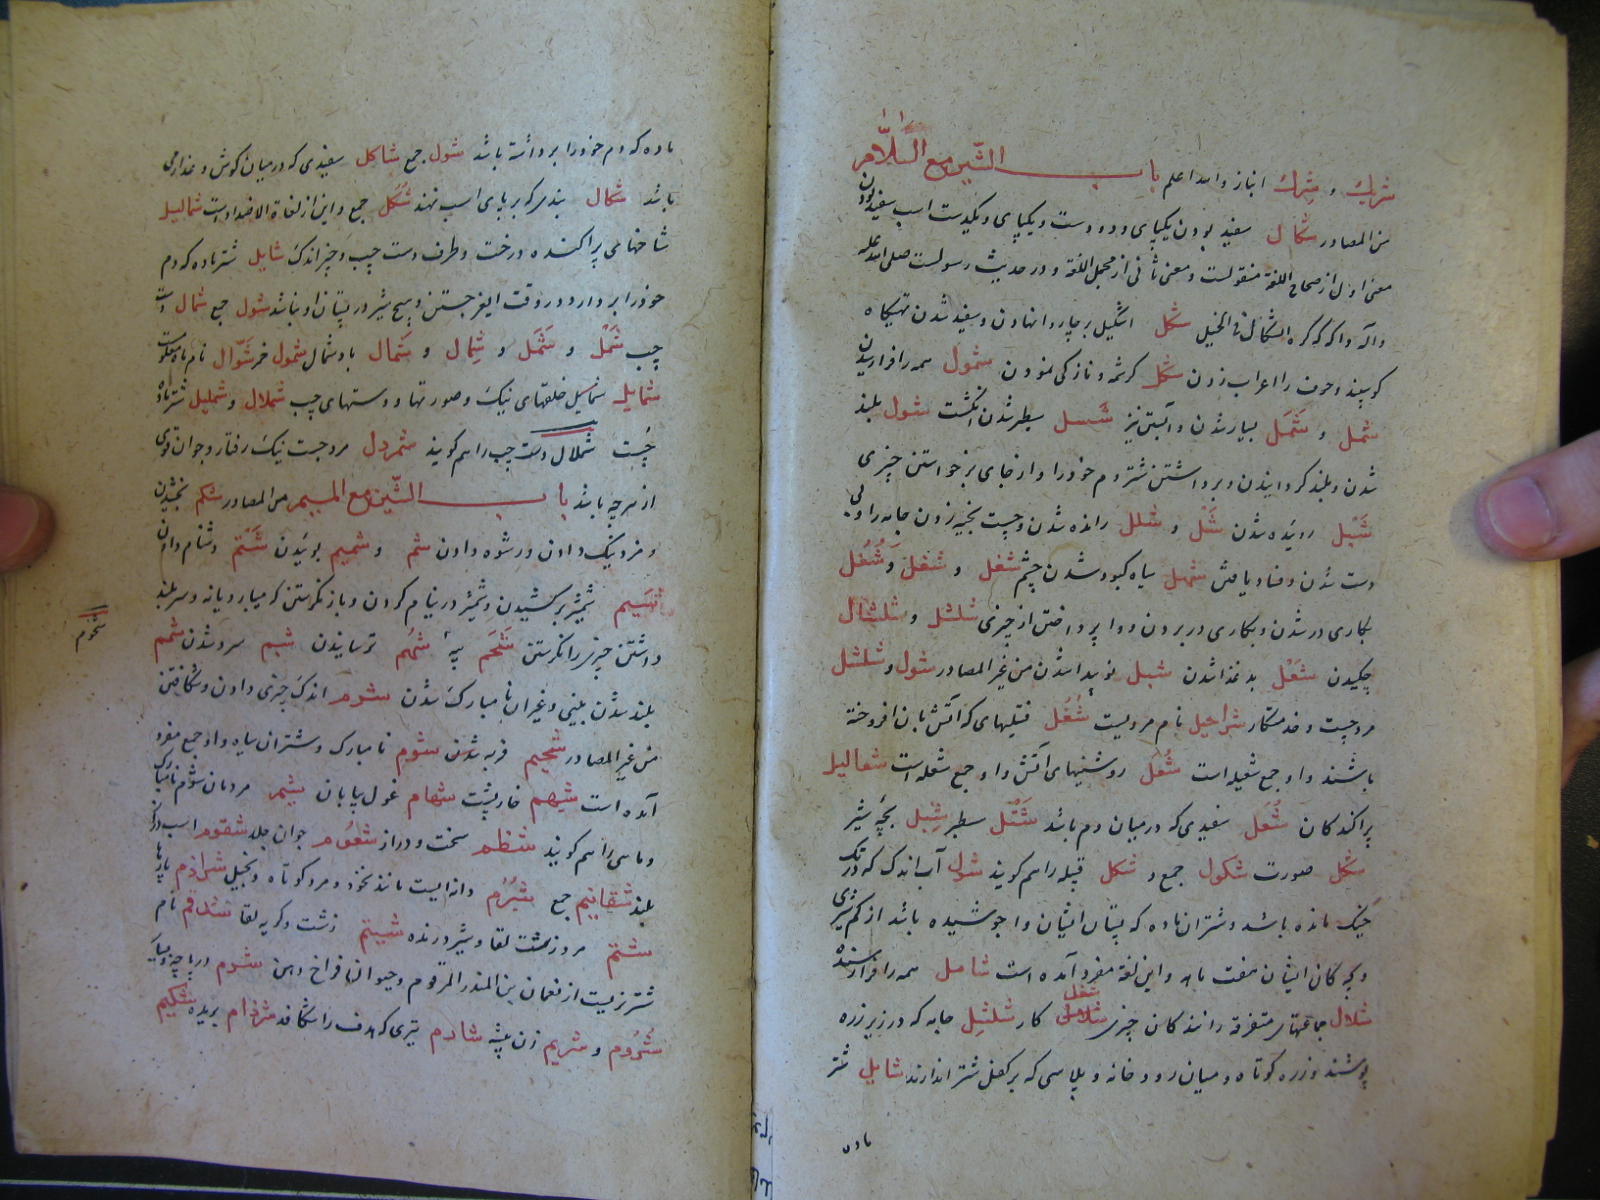 شریک و شرک انباز والله اعلم باب الشین مع اللام
من المصادر شکال سفید بودن یکپای و دو دست و یکپای و یکدست اسب سفید بودن
معنی اول از صحاح اللغة منقولست و معنی ثانی از مجمل اللغة و در حدیث رسولست صلی الله علیه
وآله کره الشکال فی الخیل شکل اشکیل بر چاروا نهادن و سفید شدن تهیگاه
کوسپند و حرف را اعراب زدن شکل کرشمه و نازکی نمودن شمول همه را فرارسیدن
شمل و شمل بسیار شدن و آبستن نیز سطبر شدن انگشت شول بلند
شدن و بلند گردانیدن و برداشتن شتر دم خود را و از جای برخواستن چیزی
شبل روئیده شدن شل و شلل رانده شدن و چست بخیه زدن جامه را و
دست شدن و فساد یافتن شهل سیاه کبود شدن چشم شغل و شغل و شغل
بکاری در شدن و بکاری در بردن و واپرداختن از چیزی شلشل و شلشال
چکیدن شغل بد غذا شدن شبل من غیر المصادر شول و شلشل
مرد چست و خدمتکار شراحیل نام مردیست شعل فتیلهای که آتش بآن افروخته
باشند و او جمع شعیله است شعل روشنیهای آتش و او جمع شعله است شعالیل
پراکندکان شعل سفیدی که در میان دم باشد شثل سطبر شبل بچه شیر
شکل صورت شکول جمع و شکل قبیله را هم گویند شول آب اندک که در تک
خیک مانده باشد و شتران ماده که پستان ایشان واجوشیده باشد از کم شیری
و بچه کان ایشان هفت ماهه و این لغة مفرد آمده است شامل همه را فرارسنده
شلال جماعتهای متفرقه رانندکان چیزی کار شلشل جامه که در زیر زره
پوشند و زره کوتاه و میان رودخانه و پلاسی که بر کفل شتر اندازند شایل شتر
ماده
ماده که دم خود را برداشته باشد شول جمع شاکل سفیدی که در میان گوش و عذار می
باشد شکال بندی که بر پای اسب نهند شکل جمع و این از لغاة الاضداد است شمالیل
شاخهای پراکنده درخت و طرف دست چپ و چیز اندک شایل شتر ماده که دم
خود را بر دارد در وقت و هیچ شیر در پستان او نباشد شول جمع شمال دست
چپ شمل و شمل و شمال و شمال باد شمال شمول خمر شوال نام ماهیست
شمایل شمایل خلقهای نیک و صورتها و دستهای چپ شملال و شملیل شتر ماده
چست شملال دست چپ را هم گویند شمردل مرد چست نیک رفتار و جوان قوی
از هرچه باشد باب الشین مع المیم من المصادر شکم بخشیدن
و مزد نیک دادن و رشوه دادن شم و شمیم بوئیدن شتم دشنام دادن
شیم شمشیر برکشیدن و شمشیر در نیام کردن و باز نگرستن که میبارد یا نه و سر بلند
داشتن چیزی را نگرستن شحم پیه شهم ترسانیدن شبم سرد شدن شمم
شحوم
بلند شدن بینی و غیر آن نامبارک شدن شرم اندک چیزی دادن و شکافتن
من غیر المصادر شحیم فربه شدن شوم نامبارک و شتران سیاه و او جمع مفرد
آمده است شیهم خارپشت شهام غول بیابان شیم مردمان شوم
و ماهی را هم گویند شظم سخت و دراز شغموم جوان جلد شقوم اسب
بلند شقاییم جمع شبرم دانه ایست مانند نخود و مرد کوتاه و بخیل شراذم پارها
شتم مرد زشت لقا و شیر درنده شتیم زشت و کریه لقا شدقم نام
شتر نریست از نعمان بن المنذر المرقوم و حیوان فراخ دهن شرم
شروم و شریم زن شارم تیری که هدف را شکافد بریده شکیم